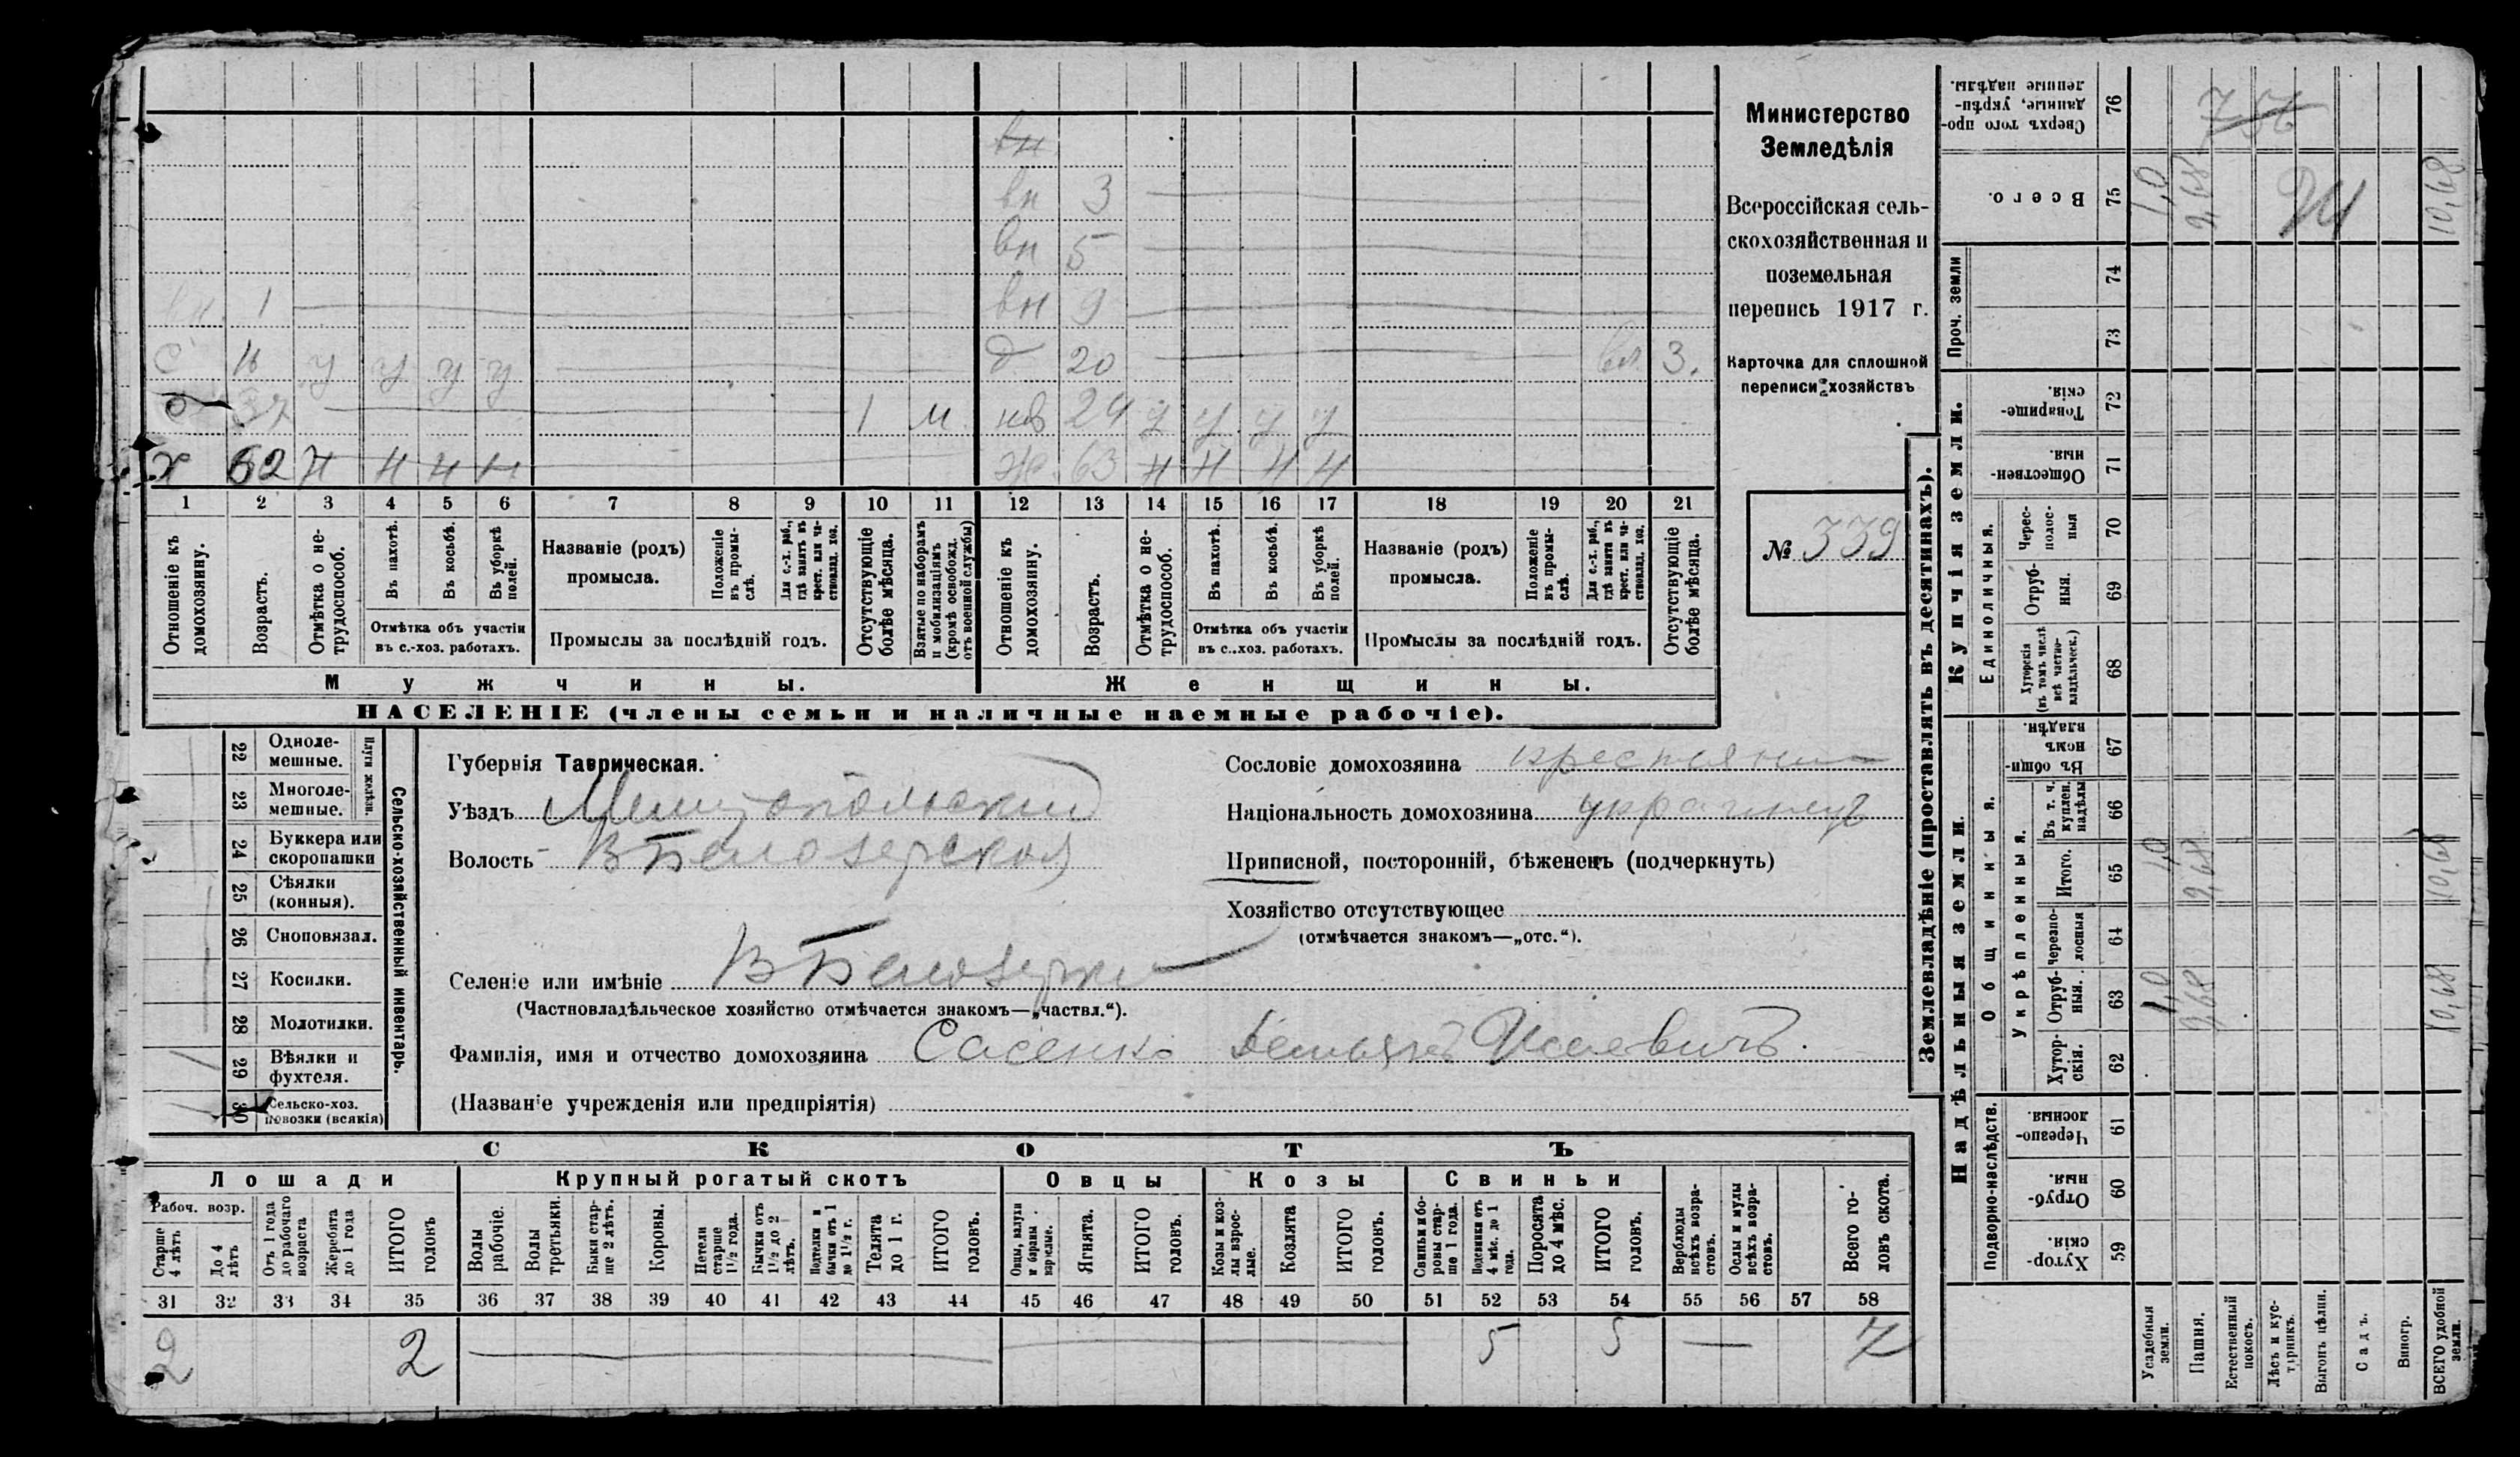 вн
вн 3
вн 5
вн. 1 вн 9
с 16 у у у у д 20 вл 3.
с 37 1 м нв 24 у у у у
х 62 н н н н ж 63 н н н н
1 2 3 4 5 6 7 8 9 10 11 12 13 14 15 16 17 18 19 20 21
Отношеніе къ домохозяину.
Возрастъ.
Отмѣтка о не-
трудоспособ.
Въ пахотѣ.
Въ косьбѣ.
Въ уборкѣ полей.
Отмѣтка объ участіи
въ с.-хоз. работахъ.
Названіе (родъ)
промысла.
Положеніе въ промы-
слѣ.
Для с.-х. раб., гдѣ занятъ въ крест. или ча-
стновлад. хоз.
Промыслы за послѣдній годъ.
Отсутствующіе болѣе мѣсяца.
Взятые по наборамъ и мобилизаціямъ (кромѣ освобожд. отъ военной службы)
Отношеніе къ домохозяину.
Возрастъ.
Отмѣтка о не-
трудоспособ.
Въ пахотѣ.
Въ косьбѣ.
Въ уборкѣ полей.
Отмѣтка объ участіи
въ с..хоз. работахъ.
Названіе (родъ)
промысла.
Положеніе въ промы-
слѣ.
Для с.-х. раб., гдѣ занята въ крест. или ча-
стновлад. хоз.
Промыслы за послѣдній годъ.
Отсутствующіе болѣе мѣсяца.
Мужчины. Женщины.
НАСЕЛЕНІЕ (члены семьи и наличные наемные рабочіе).
Министерство
Земледѣлія
Всероссійская сель-
скохозяйственная и
поземельная
перепись 1917 г.
Карточка для сплошной
переписи хозяйствъ
№ 339
22 Одноле-
мешные.
23 Многоле-
мешные.
24 Буккера или
скоропашки
25 Сѣялки
(конныя).
26 Сноповязал.
27 Косилки.
28 Молотилки.
29 Вѣялки и
фухтеля.
30 Сельско-хоз.
повозки (всякія)
Сельско-хозяйственный инвентарь.
Губернія Таврическая.
Уѣздъ Мелитопольский
Волость В Белозерская
Селеніе или имѣніе В Белозерка
(Частновладѣльческое хозяйство отмѣчается знакомъ—„частвл.“).
Фамилія, имя и отчество домохозяина Сасенко Демьянъ Исаевичъ.
(Названіе учрежденія или предпріятія)
Сословіе домохозяина крестьянин
Національность домохозяина украинецъ
Приписной, посторонній, бѣженецъ (подчеркнуть)
Хозяйство отсутствующее
(отмѣчается знакомъ—„отс.“).
СКОТЪ
Лошади Крупный рогатый скотъ Овцы Козы Свиньи
Рабоч. возр.
Старше 4 лѣтъ
До 4 лѣтъ
Отъ 1 года до рабочаго возраста
Жеребята до 1 года
ИТОГО головъ
Волы рабочіе.
Волы третьяки.
Быки стар-
ше 2 лѣтъ.
Коровы.
Нетели старше 1½ года.
Бычки отъ 1½ до 2 лѣтъ.
Подтелки и бычки отъ 1 до 1½ г.
Телята до 1 г.
ИТОГО головъ.
Овцы, валухи и бараны взрослые.
Ягнята.
ИТОГО головъ.
Козы и коз-
лы взрос-
лые.
Козлята
ИТОГО головъ.
Свиньи и бо-
ровы стар-
ше 1 года.
Подсвинки отъ 4 мѣс. до 1 года.
Поросята до 4 мѣс.
ИТОГО головъ.
Верблюды всѣхъ возра-
стовъ.
Ослы и мулы всѣхъ возра-
стовъ.
Всего го-
ловъ скота.
31 32 33 34 35 36 37 38 39 40 41 42 43 44 45 46 47 48 49 50 51 52 53 54 55 56 57 58
2 2 5 5 — 7
Землевладѣніе (проставлять въ десятинахъ).
Купчія земли.
Надѣльныя земли.
Проч. земли
Единоличныя.
Общинныя.
Укрѣпленныя.
Подворно-наслѣдств.
Сверхъ того про-
данные, укрѣп-
ленные надѣлы. 76 7 56
Всего. 75 1,0 9,68 24 10,68
74
73
Товарище-
скія. 72
Обществен-
ныя. 71
Черес-
полос-
ныя 70
Отруб-
ныя. 69
Хуторскія
(въ томъ числѣ
всѣ частно-
владѣльческ.) 68
Въ общин-
номъ
владѣн. 67
Въ т. ч.
куплен.
надѣлы 66
Итого. 65 1,0 9,68 10,68
Черезпо-
лосныя 64
Отруб-
ныя. 63 1,0 9,68 10,68
Хутор-
скія. 62
Черезпо-
лосныя. 61
Отруб-
ныя. 60
Хутор-
скія. 59
Усадебныя земли.
Пашня.
Естественный покосъ.
Лѣсъ и кус-
тарникъ.
Выгонъ цѣлин.
Садъ.
Виногр.
ВСЕГО удобной земли.